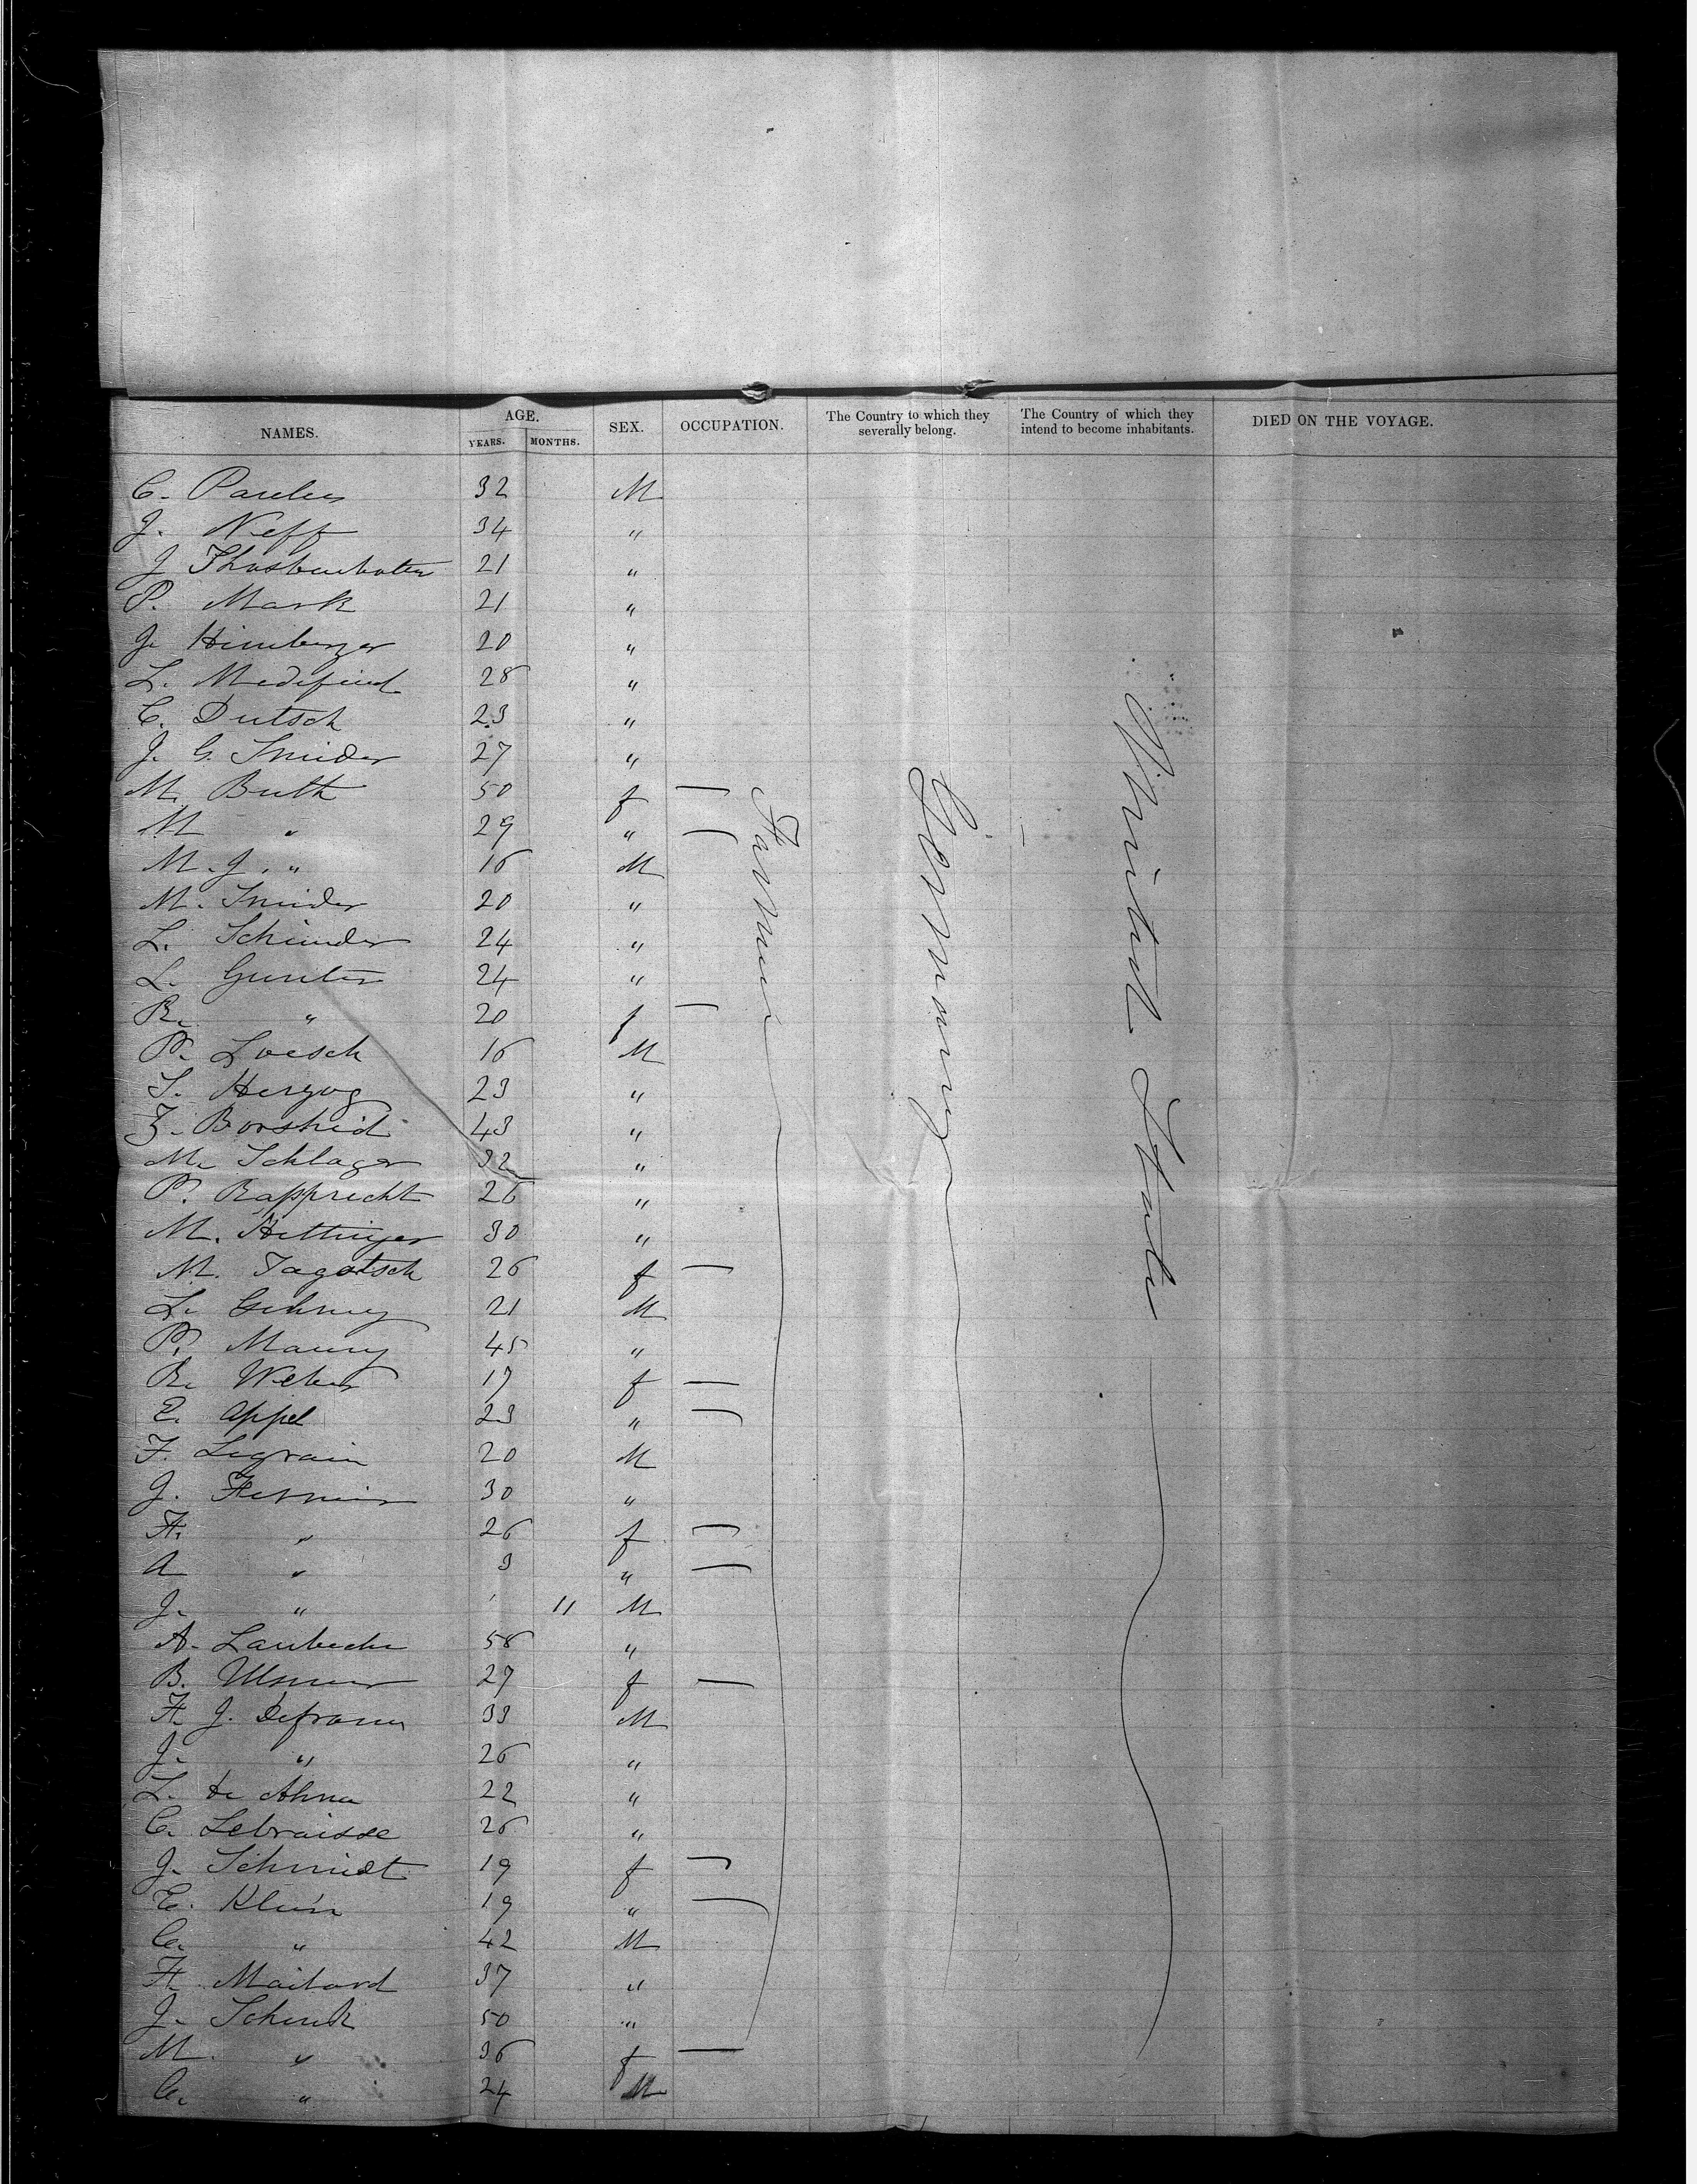 NAMES. AGE. YEARS. MONTHS. SEX. OCCUPATION. The Country to which they severally belong. The Country of which they intend to become inhabitants. DIED ON THE VOYAGE.
C. 32 M
J. Neff 34 "
J 21 "
P. Mark 21 "
J. 20 "
L. 28 "
C. Dutsch 23 "
J. G. Snider 27 "
M. Buth 50 f —
M " 29 " —
M. J. " 16 M
M. Snider 20 "
L. 24 "
L. Gunter 24 "
R. " 20 f —
P. Loesch 16 M
S. Herzog 23 "
Z. Borshid 43 "
M. Schlager 32 "
P. Rapprecht 26 "
M. Hettinger 30 "
M. Jagotsch 26 f —
L. 21 M
P. Maury 45 "
R. Weber 17 f —
E. Appel 23 " —
F. Legrain 20 M
J. 30 "
H. " 26 f —
A " 3 " —
J. " 11 M
A. 58 "
B. 27 f —
H. J. 33 M
J. " 26 "
L. de Ahna 22 "
C. Lebraisse 26 "
J. Schmidt 19 f —
E. Klein 19 " —
C. " 42 M
H. Maitard 37 "
J. Schenk 50 "
M. " 36 f —
C. " 24 M
Farmers
Germany
United States